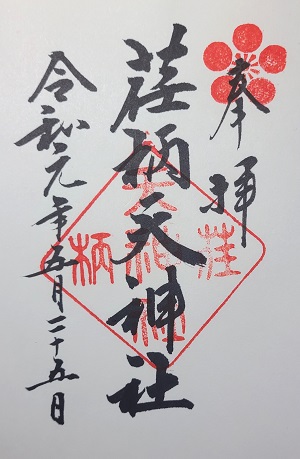 奉拝
荏柄天神社
令和元年五月二十五日
荏柄天神社